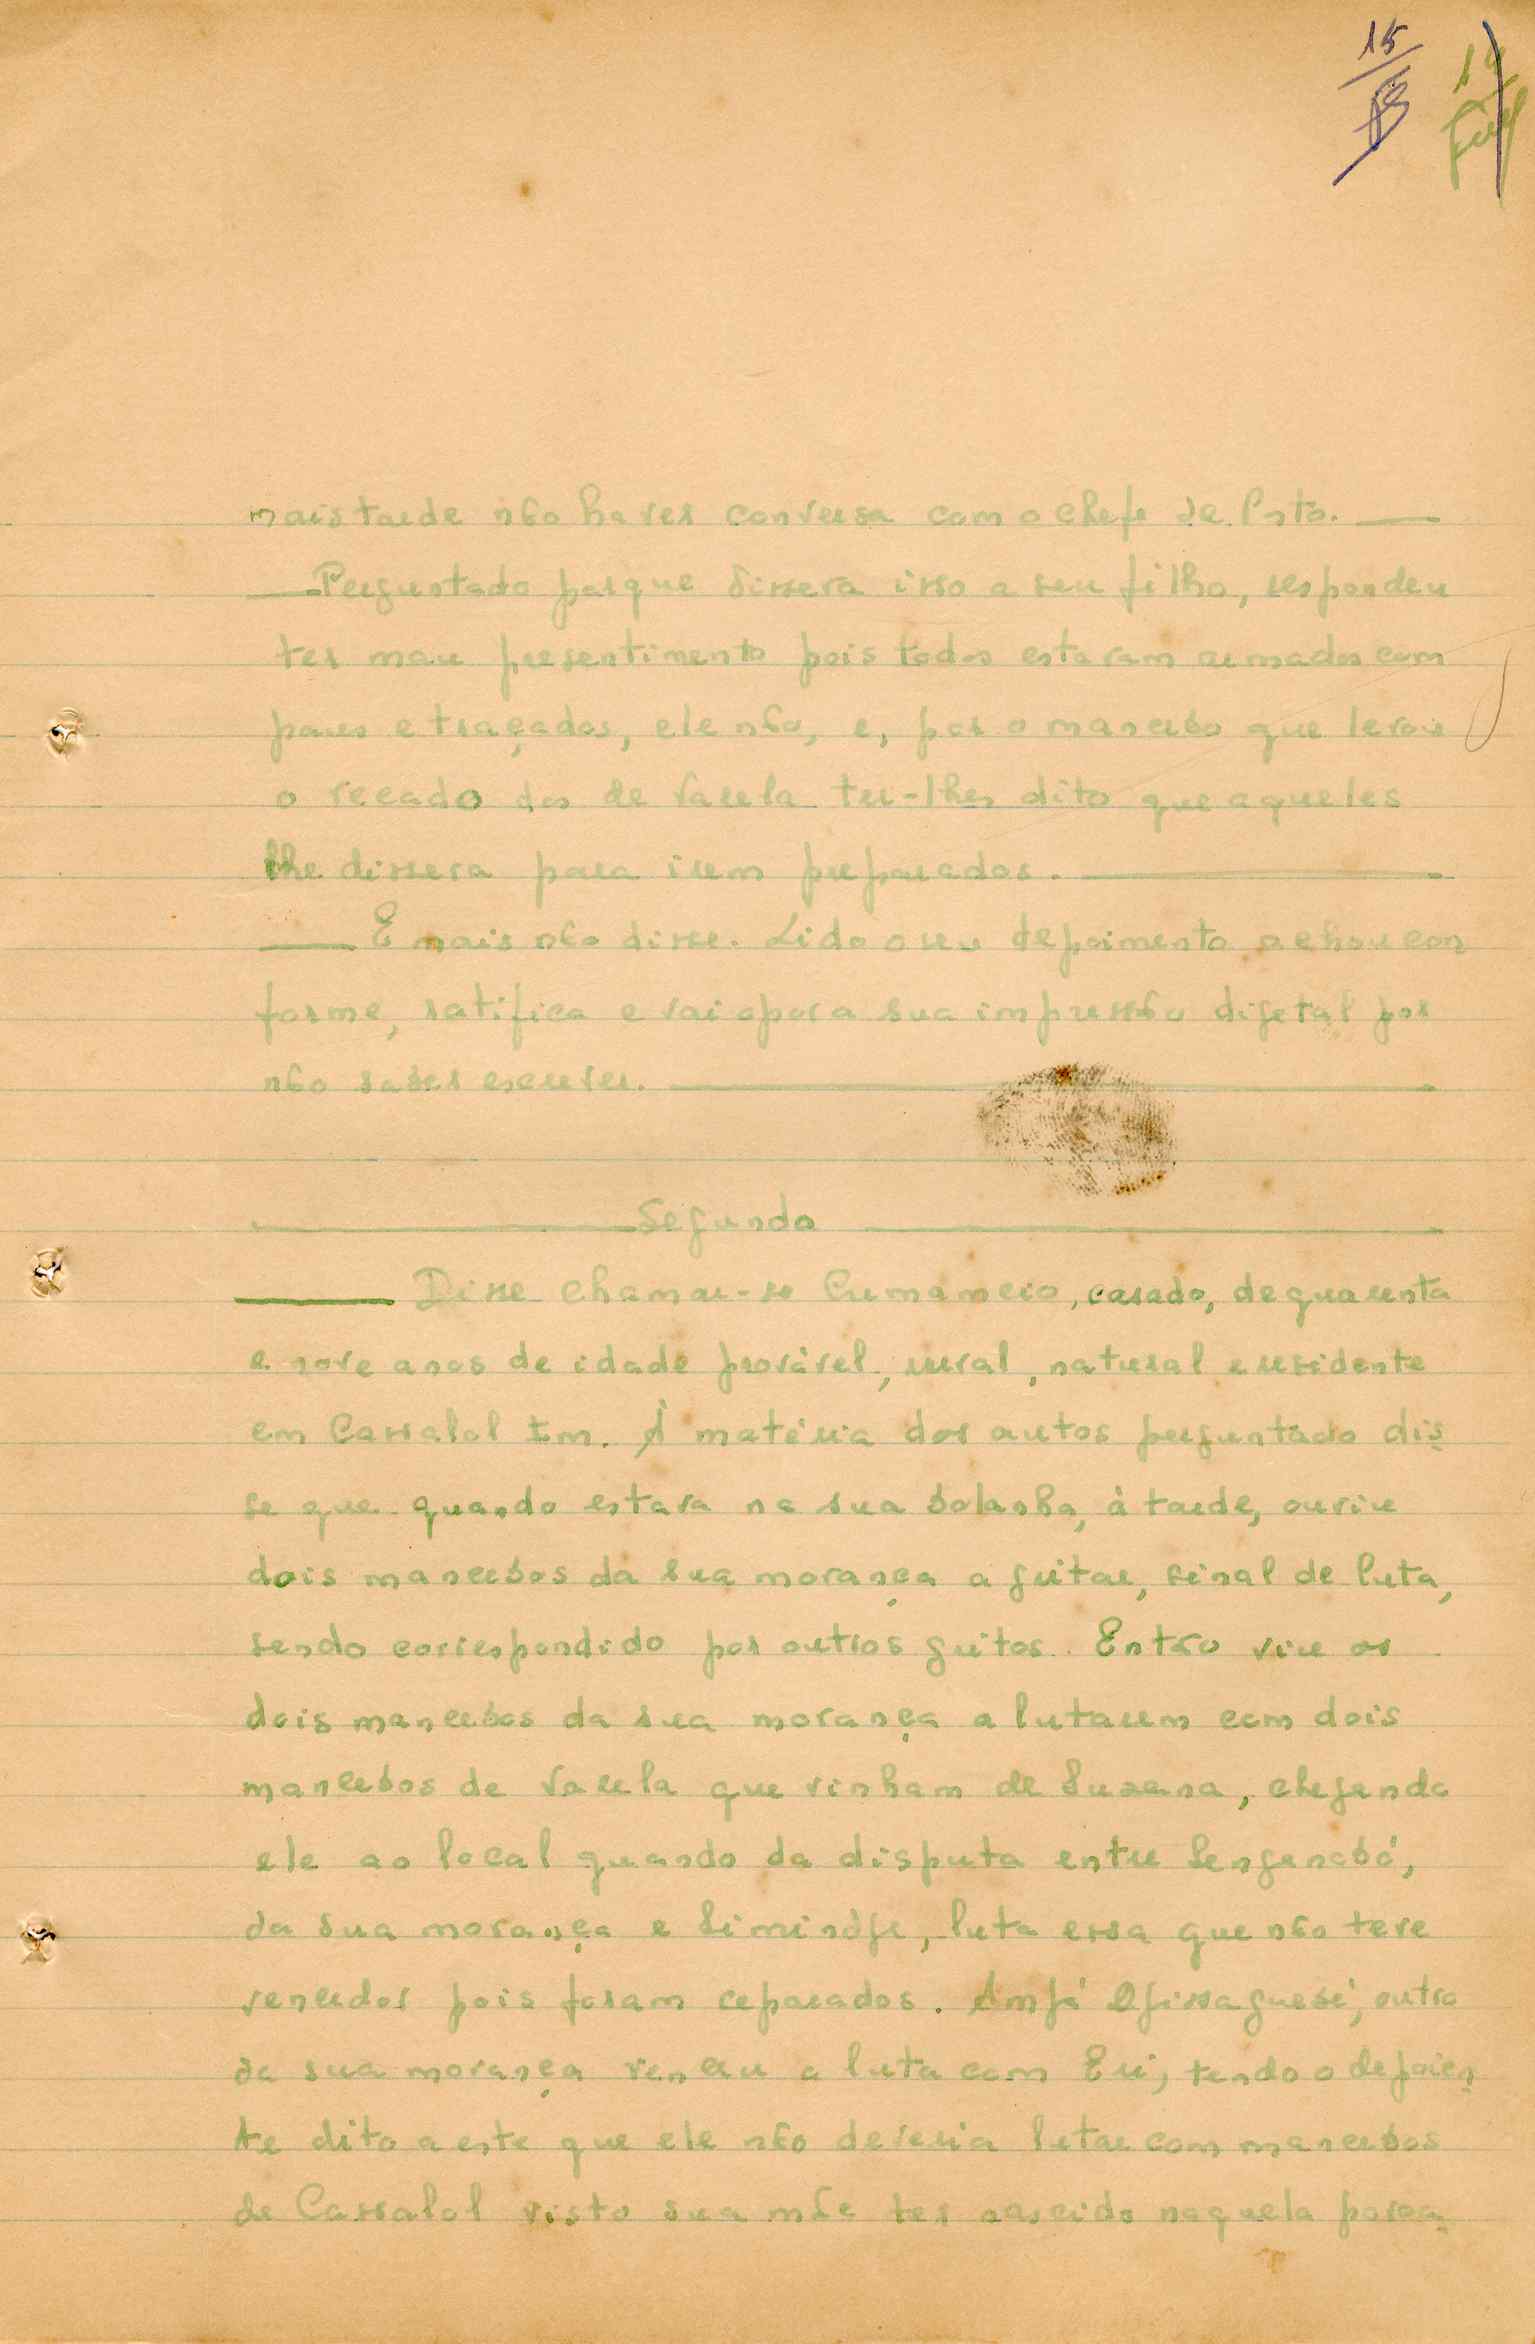 15
mais tarde não haver conversa com o Chefe de Posto.
Perguntado porque dissera isso a seu filho, respondeu
ter mau presentimento pois todos estavam armados com
paus e traçados, ele não, e, por o mancebo que levou
o recado dos de Varela ter-lhes dito que aqueles
lhe dissera para irem preparados.
E mais não disse. Lido o seu depoimento achou con
forme, ratifica e vai apor a sua impressão digetal por
não saber escrever.
Segundo
Disse chamar-se Cumamcio, casado, de quarenta
e nove anos de idade provável, rural, natural e residente
em Cassalol Em. À matéria dos autos perguntado dis
se que quando estava na sua bolanha, à tarde, ouviu
dois mancebos da sua morança a gritar, sinal de luta,
sendo correspondido por outros gritos. Então viu os
dois mancebos da sua morança a lutarem com dois
mancebos de Varela que vinham de Suzana, chegando
ele ao local quando da disputa entre Sengenabó,
da sua morança e Siminóge, luta essa que não teve
vencedor pois foram separados. Ampá outro
da sua morança venceu a luta com Eri, tendo o depoien
te dito a este que ele não deveria lutar com mancebos
de Cassalol visto sua mãe ter nascido naquela povoa